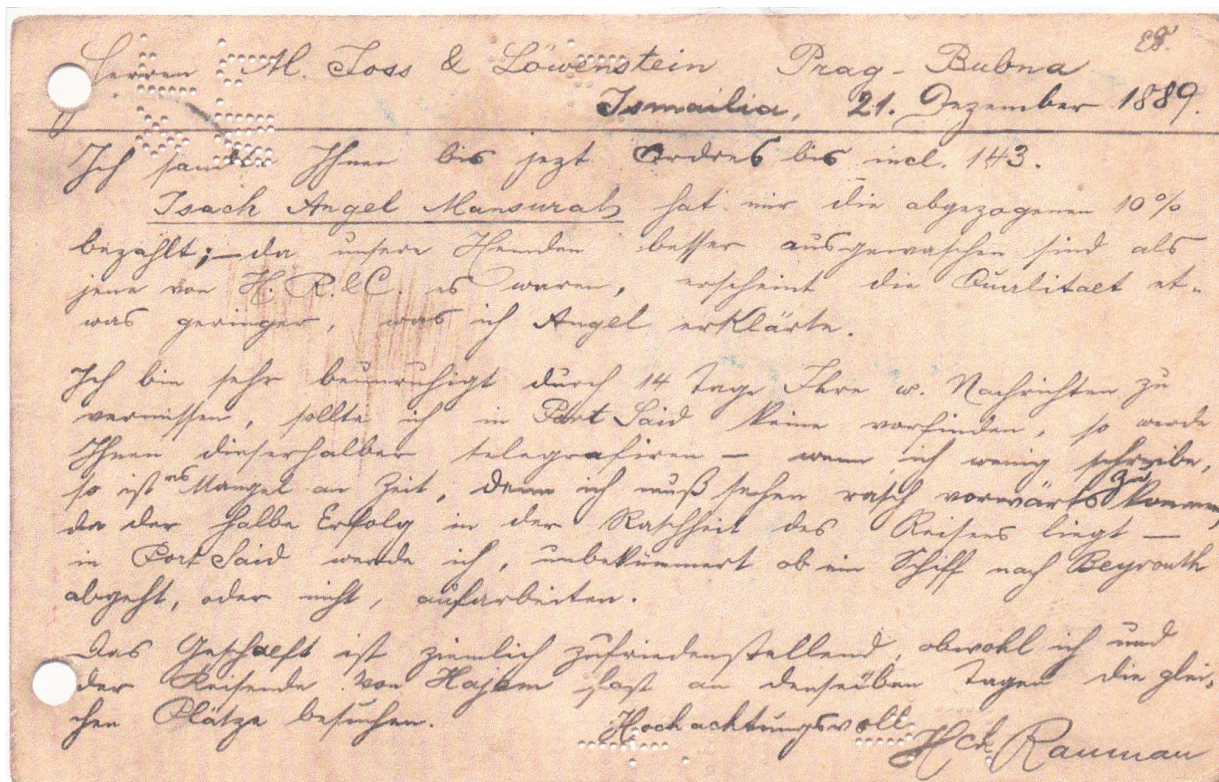 Herren M. Joss & Löwenstein Prag-Bubna
Ismailia, 21. Dezember 1889.
Ich sandte Ihnen bis jezt Ordres bis incl. 143.
Isach Angel Mansurah hat mir die abgezogenen 10%
bezahlt; – da unsere Hemden besser ausgewaschen sind als
jene von H. R. & C. es waren, erscheint die Qualitaet et-
was geringer, was ich Angel erklärte.
Ich bin sehr beunruhigt durch 14 Tage Ihre w. Nachrichten zu
vermissen, sollte ich in Port Said keine vorfinden, so werde
Ihnen dieserhalber telegrafiren – wenn ich wenig schreibe,
so ist es Mangel an Zeit, denn ich muß sehen rasch vorwärts zu kommen,
da der halbe Erfolg in der Raschheit des Reisens liegt –
in Port Said werde ich, unbekümmert ob ein Schiff nach Beyrouth
abgeht, oder nicht, aufarbeiten.
Das Geschaeft ist ziemlich zufriedenstellend, obwohl ich und
der Reisende von Hajam fast an denselben Tagen die glei-
chen Plätze besuchen.
Hochachtungsvoll